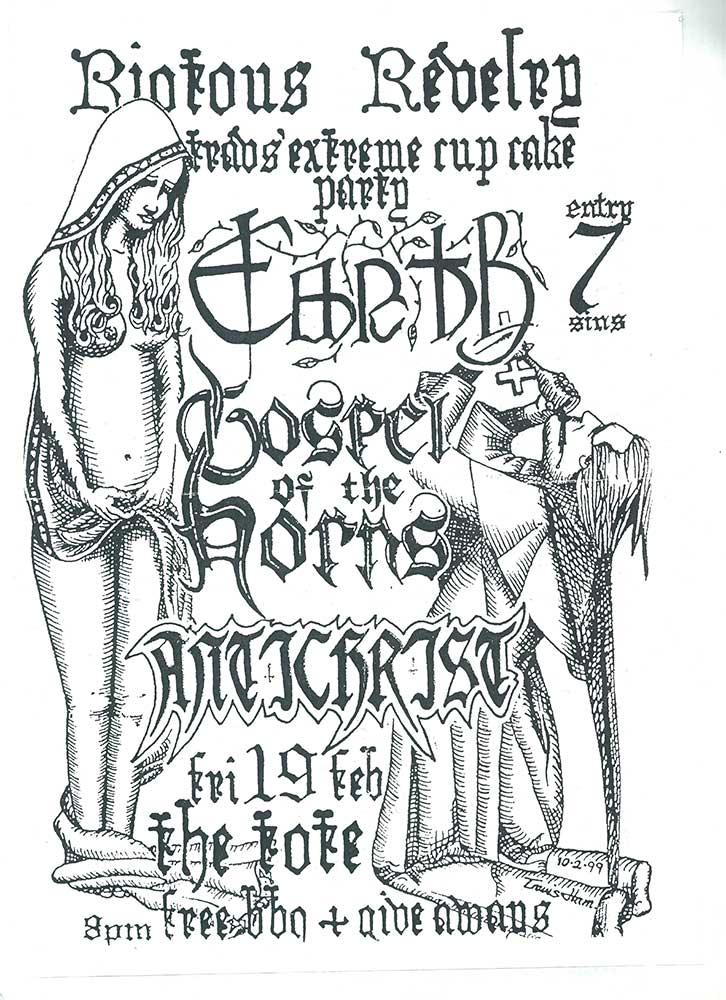 Riotous Revelry
travs' extreme cup cake
party
entry
7
sins
Earth
Gospel
of the
Horns
ANTICHRIST
fri 19 feb
the tote
10·2·99
8pm free bbq + give aways